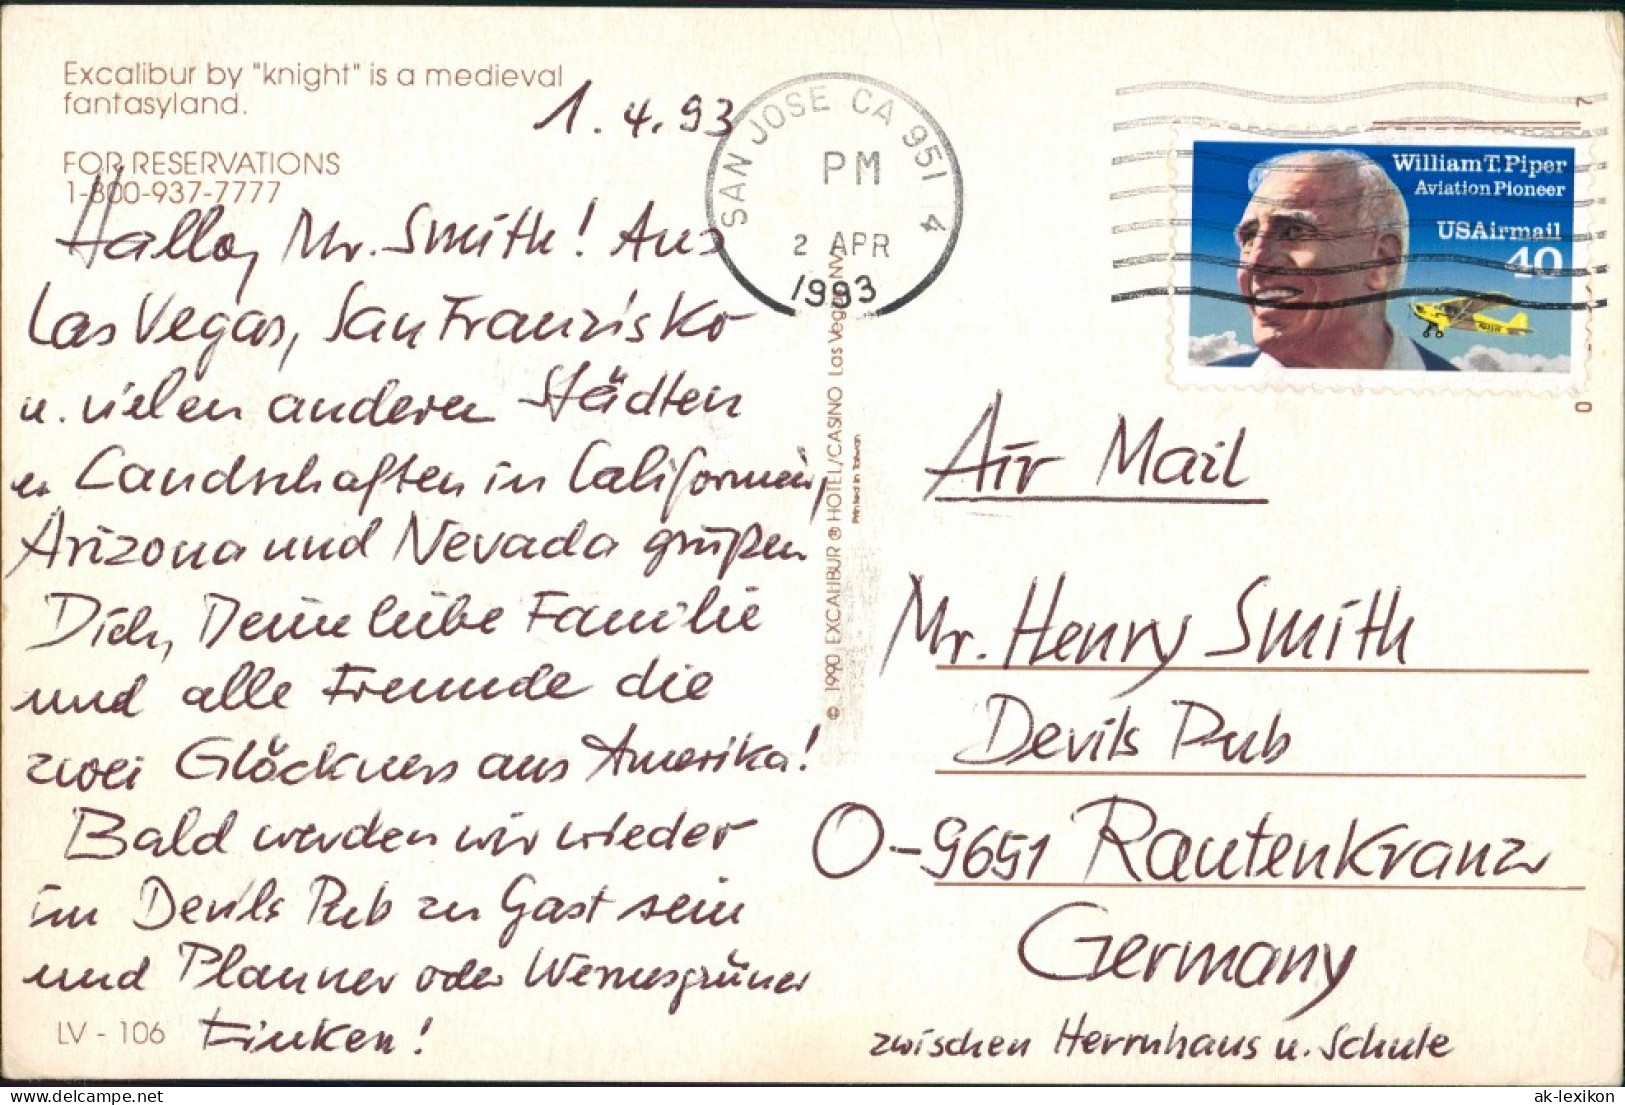 Excalibur by "knight" is a medieval
fantasyland.
1.4.93
FOR RESERVATIONS
1-800-937-7777
Hallo, Mr. Smith! Aus
Las Vegas, San Franzisko
u. vielen anderen Städten
u. Landschaften in Californien,
Arizona und Nevada grüßen
Dich, Deine liebe Familie
und alle Freunde die
zwei Glöckners aus Amerika!
Bald werden wir wieder
im Devils Pub zu Gast sein
und Planner oder Wernesgrüner
trinken!
LV - 106
SAN JOSE CA 951 4
PM
2 APR
1993
© 1990 EXCALIBUR ® HOTEL/CASINO Las Vegas, NV
Printed in Taiwan
William T. Piper
Aviation Pioneer
USAirmail
40
Air Mail
Mr. Henry Smith
Devils Pub
O-9651 Rautenkranz
Germany
zwischen Herrnhaus u. Schule
ak-lexikon